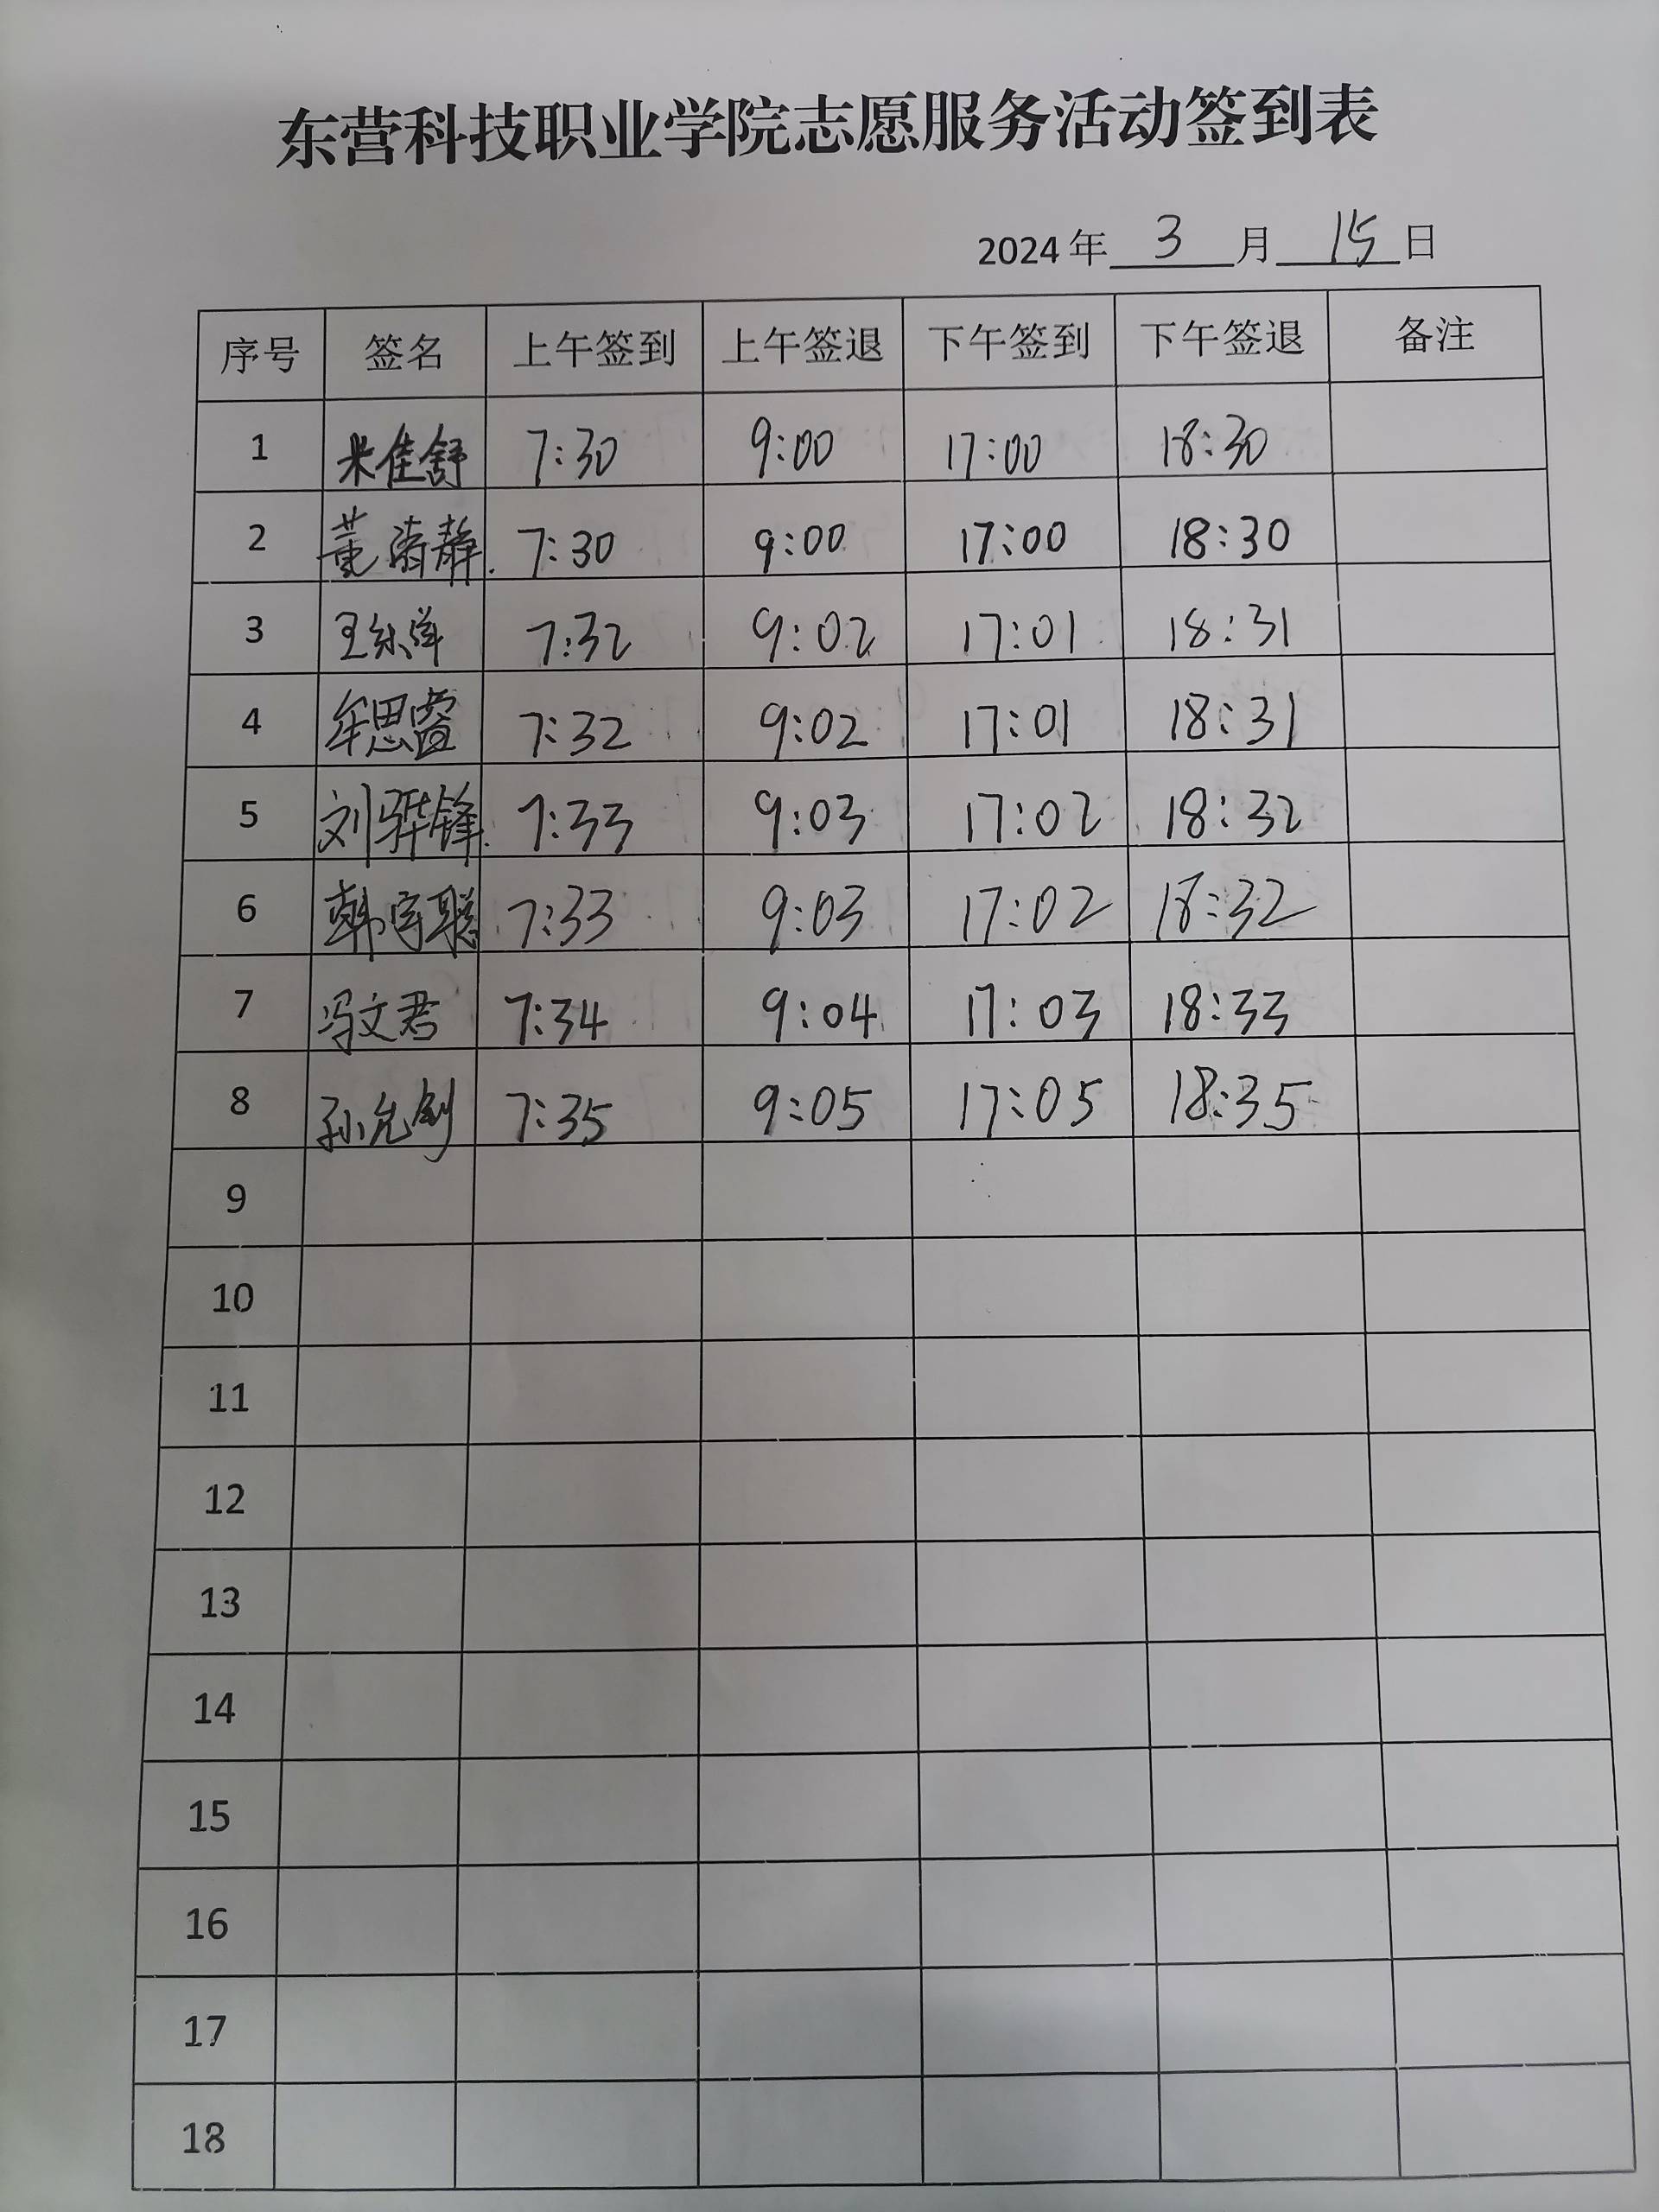 东营科技职业学院志愿服务活动签到表
2024 年 3 月 15 日
序号 签名 上午签到 上午签退 下午签到 下午签退 备注
1 米佳舒 7:30 9:00 17:00 18:30
2 董静 7:30 9:00 17:00 18:30
3 王 7:32 9:02 17:01 18:31
4 牟思睿 7:32 9:02 17:01 18:31
5 刘骅锋 7:33 9:03 17:02 18:32
6 韩宇聪 7:33 9:03 17:02 18:32
7 冯文君 7:34 9:04 17:03 18:33
8 孙允剑 7:35 9:05 17:05 18:35
9
10
11
12
13
14
15
16
17
18